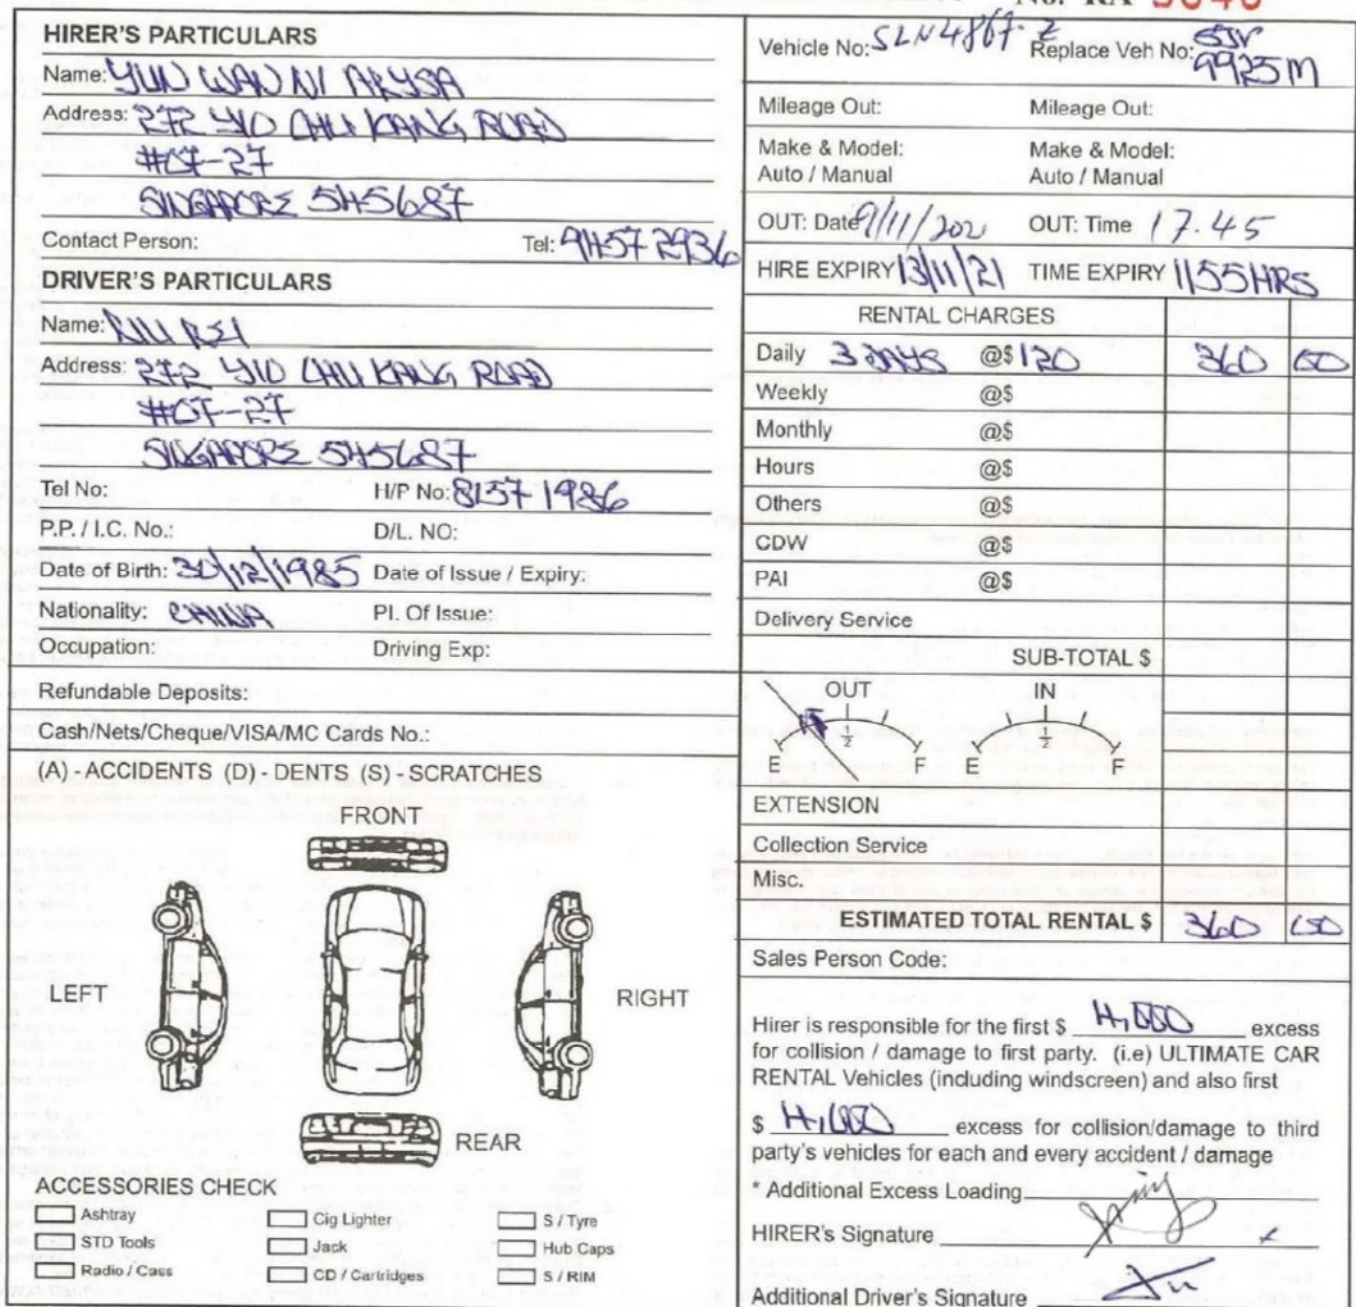 No. RA
HIRER'S PARTICULARS
Name: YUN WAN NI ARYSA
Address: 272 YIO CHU KANG ROAD
#07-27
SINGAPORE 545687
Contact Person: Tel: 9457 2936
DRIVER'S PARTICULARS
Name:
Address: 272 YIO CHU KANG ROAD
#07-27
SINGAPORE 545687
Tel No: H/P No: 8157 1986
P.P. / I.C. No.: D/L. NO:
Date of Birth: 30/12/1985 Date of Issue / Expiry:
Nationality: CHINA Pl. Of Issue:
Occupation: Driving Exp:
Refundable Deposits:
Cash/Nets/Cheque/VISA/MC Cards No.:
(A) - ACCIDENTS (D) - DENTS (S) - SCRATCHES
FRONT
LEFT
RIGHT
REAR
ACCESSORIES CHECK
Ashtray Cig Lighter S / Tyre
STD Tools Jack Hub Caps
Radio / Cass CD / Cartridges S / RIM
Vehicle No: SLN4867Z Replace Veh No: SJV
9925M
Mileage Out: Mileage Out:
Make & Model: Make & Model:
Auto / Manual Auto / Manual
OUT: Date 9/11/202 OUT: Time 17.45
HIRE EXPIRY 13/11/21 TIME EXPIRY 1155HRS
RENTAL CHARGES
Daily 3 DAYS @$ 120 360 00
Weekly @$
Monthly @$
Hours @$
Others @$
CDW @$
PAI @$
Delivery Service
SUB-TOTAL $
OUT IN
½ ½
E F E F
EXTENSION
Collection Service
Misc.
ESTIMATED TOTAL RENTAL $ 360 00
Sales Person Code:
Hirer is responsible for the first $ 4,000 excess
for collision / damage to first party. (i.e) ULTIMATE CAR
RENTAL Vehicles (including windscreen) and also first
$ 4,000 excess for collision/damage to third
party's vehicles for each and every accident / damage
* Additional Excess Loading
HIRER's Signature
Additional Driver's Signature